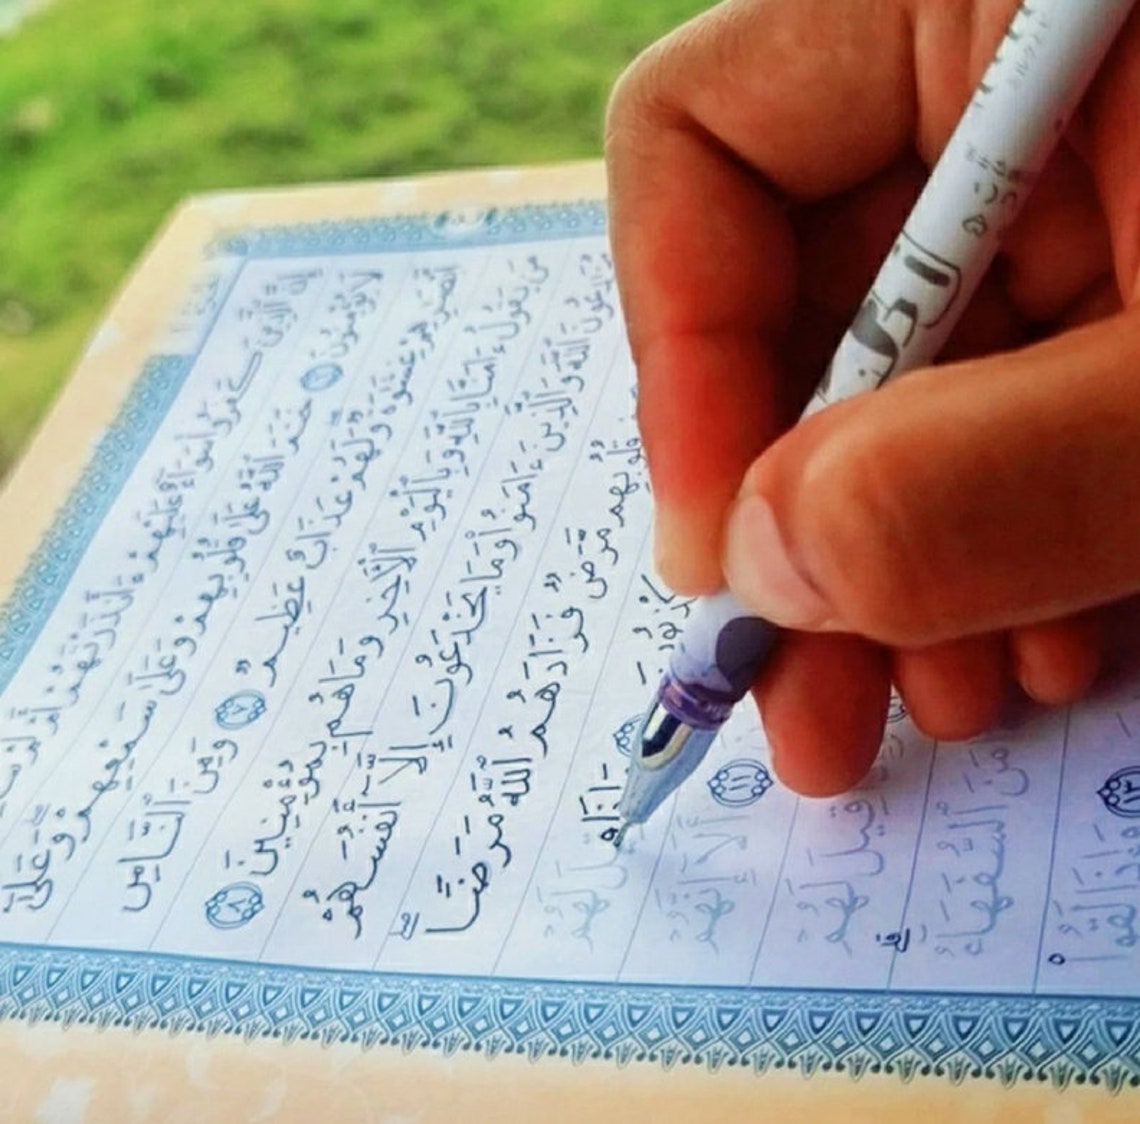 إِنَّ ٱلَّذِينَ كَفَرُوا۟ سَوَآءٌ عَلَيْهِمْ ءَأَنذَرْتَهُمْ أَمْ لَمْ
لَا يُؤْمِنُونَ ٦ خَتَمَ ٱللَّهُ عَلَىٰ قُلُوبِهِمْ وَعَلَىٰ سَمْعِهِمْ وَعَلَىٰٓ
أَبْصَٰرِهِمْ غِشَٰوَةٌ وَلَهُمْ عَذَابٌ عَظِيمٌ ٧ وَمِنَ ٱلنَّاسِ
مَن يَقُولُ ءَامَنَّا بِٱللَّهِ وَبِٱلْيَوْمِ ٱلْـَٔاخِرِ وَمَا هُم بِمُؤْمِنِينَ ٨
يُخَٰدِعُونَ ٱللَّهَ وَٱلَّذِينَ ءَامَنُوا۟ وَمَا يَخْدَعُونَ إِلَّآ أَنفُسَهُمْ
قُلُوبِهِم مَّرَضٌ فَزَادَهُمُ ٱللَّهُ مَرَضًا
وَإِذَا قِيلَ لَهُمْ
١١ أَلَآ إِنَّهُمْ
قِيلَ لَهُمْ
ٱلسُّفَهَآءُ
١٣ وَإِذَا لَقُوا۟